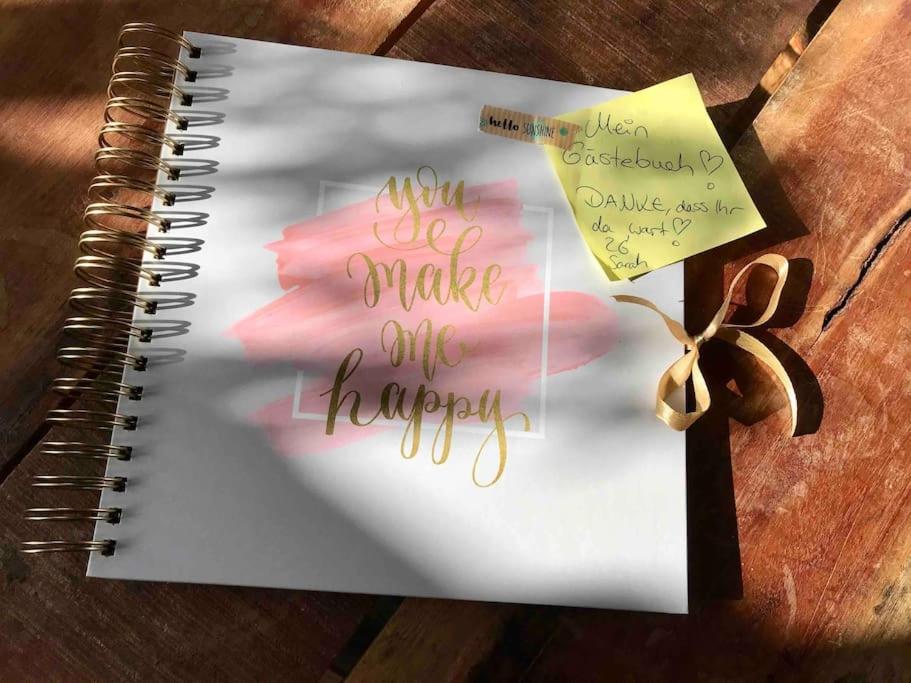 hello SUNSHINE
Mein
Gästebuch ♡
DANKE, dass Ihr
da wart ♡
Sarah
you
make
me
happy